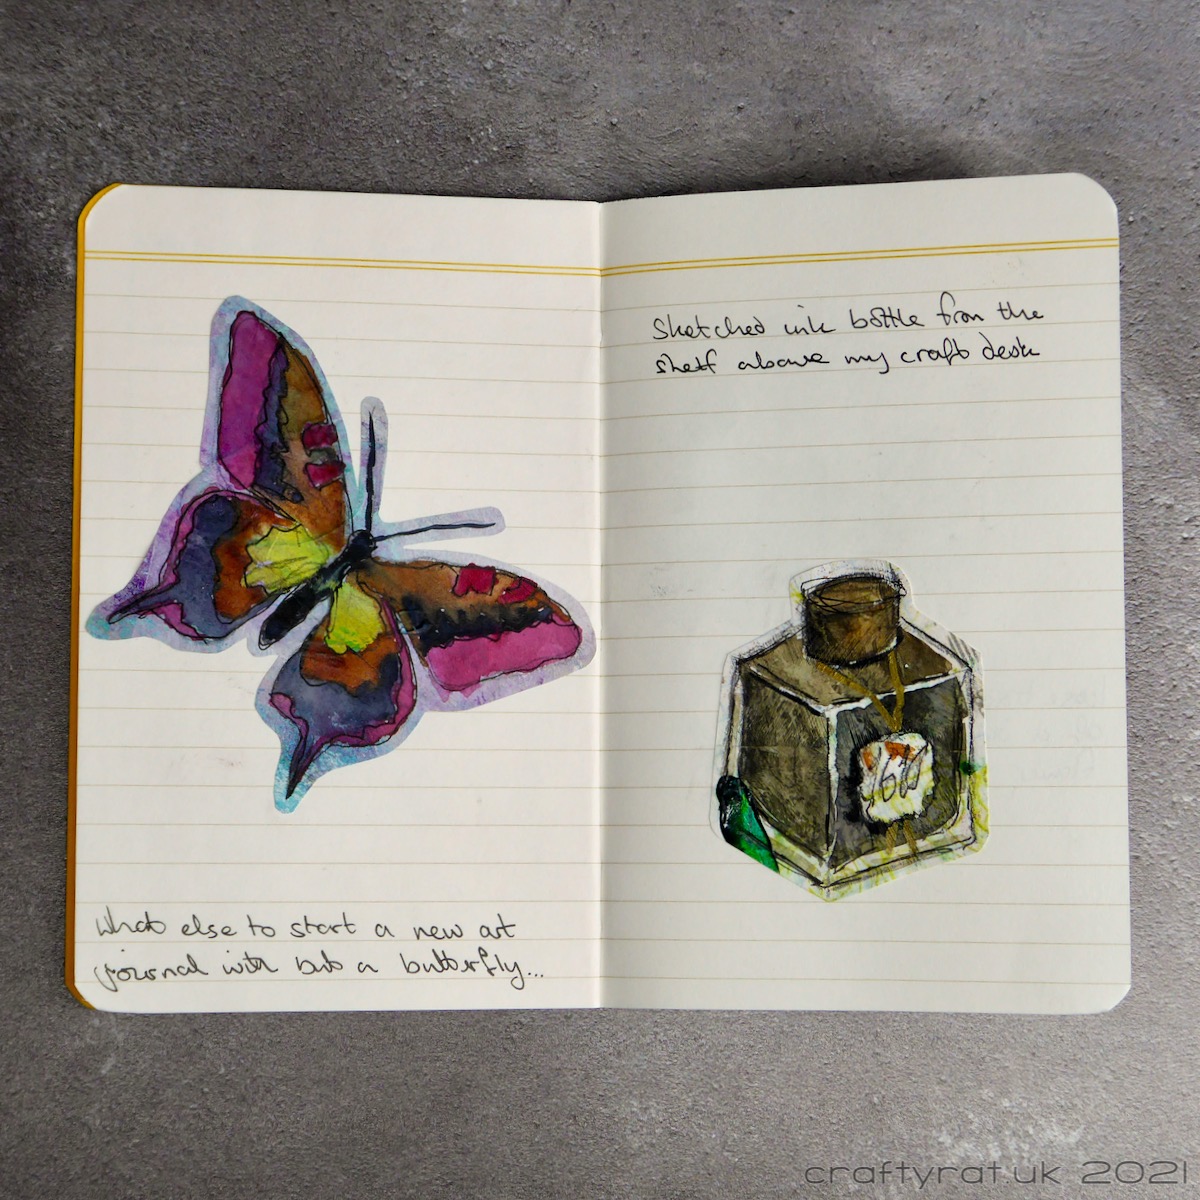 What else to start a new art
journal with but a butterfly...
Sketched ink bottle from the
shelf above my craft desk
craftyrat.uk 2021